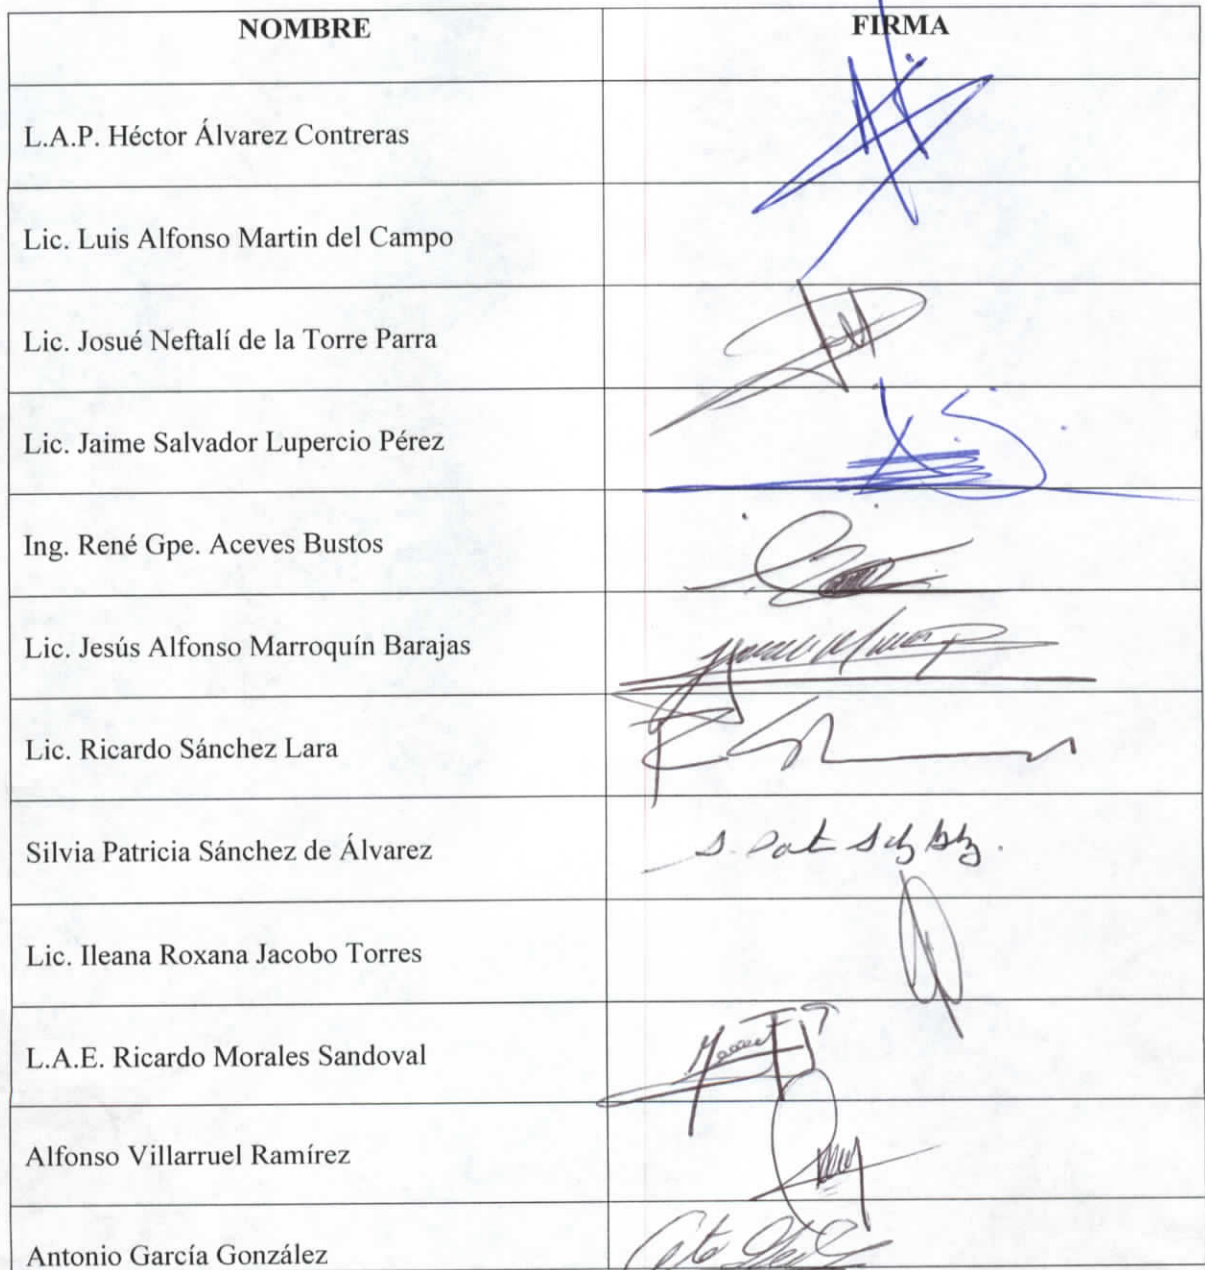 NOMBRE FIRMA
L.A.P. Héctor Álvarez Contreras
Lic. Luis Alfonso Martin del Campo
Lic. Josué Neftalí de la Torre Parra
Lic. Jaime Salvador Lupercio Pérez
Ing. René Gpe. Aceves Bustos
Lic. Jesús Alfonso Marroquín Barajas
Lic. Ricardo Sánchez Lara
Silvia Patricia Sánchez de Álvarez
Lic. Ileana Roxana Jacobo Torres
L.A.E. Ricardo Morales Sandoval
Alfonso Villarruel Ramírez
Antonio García González